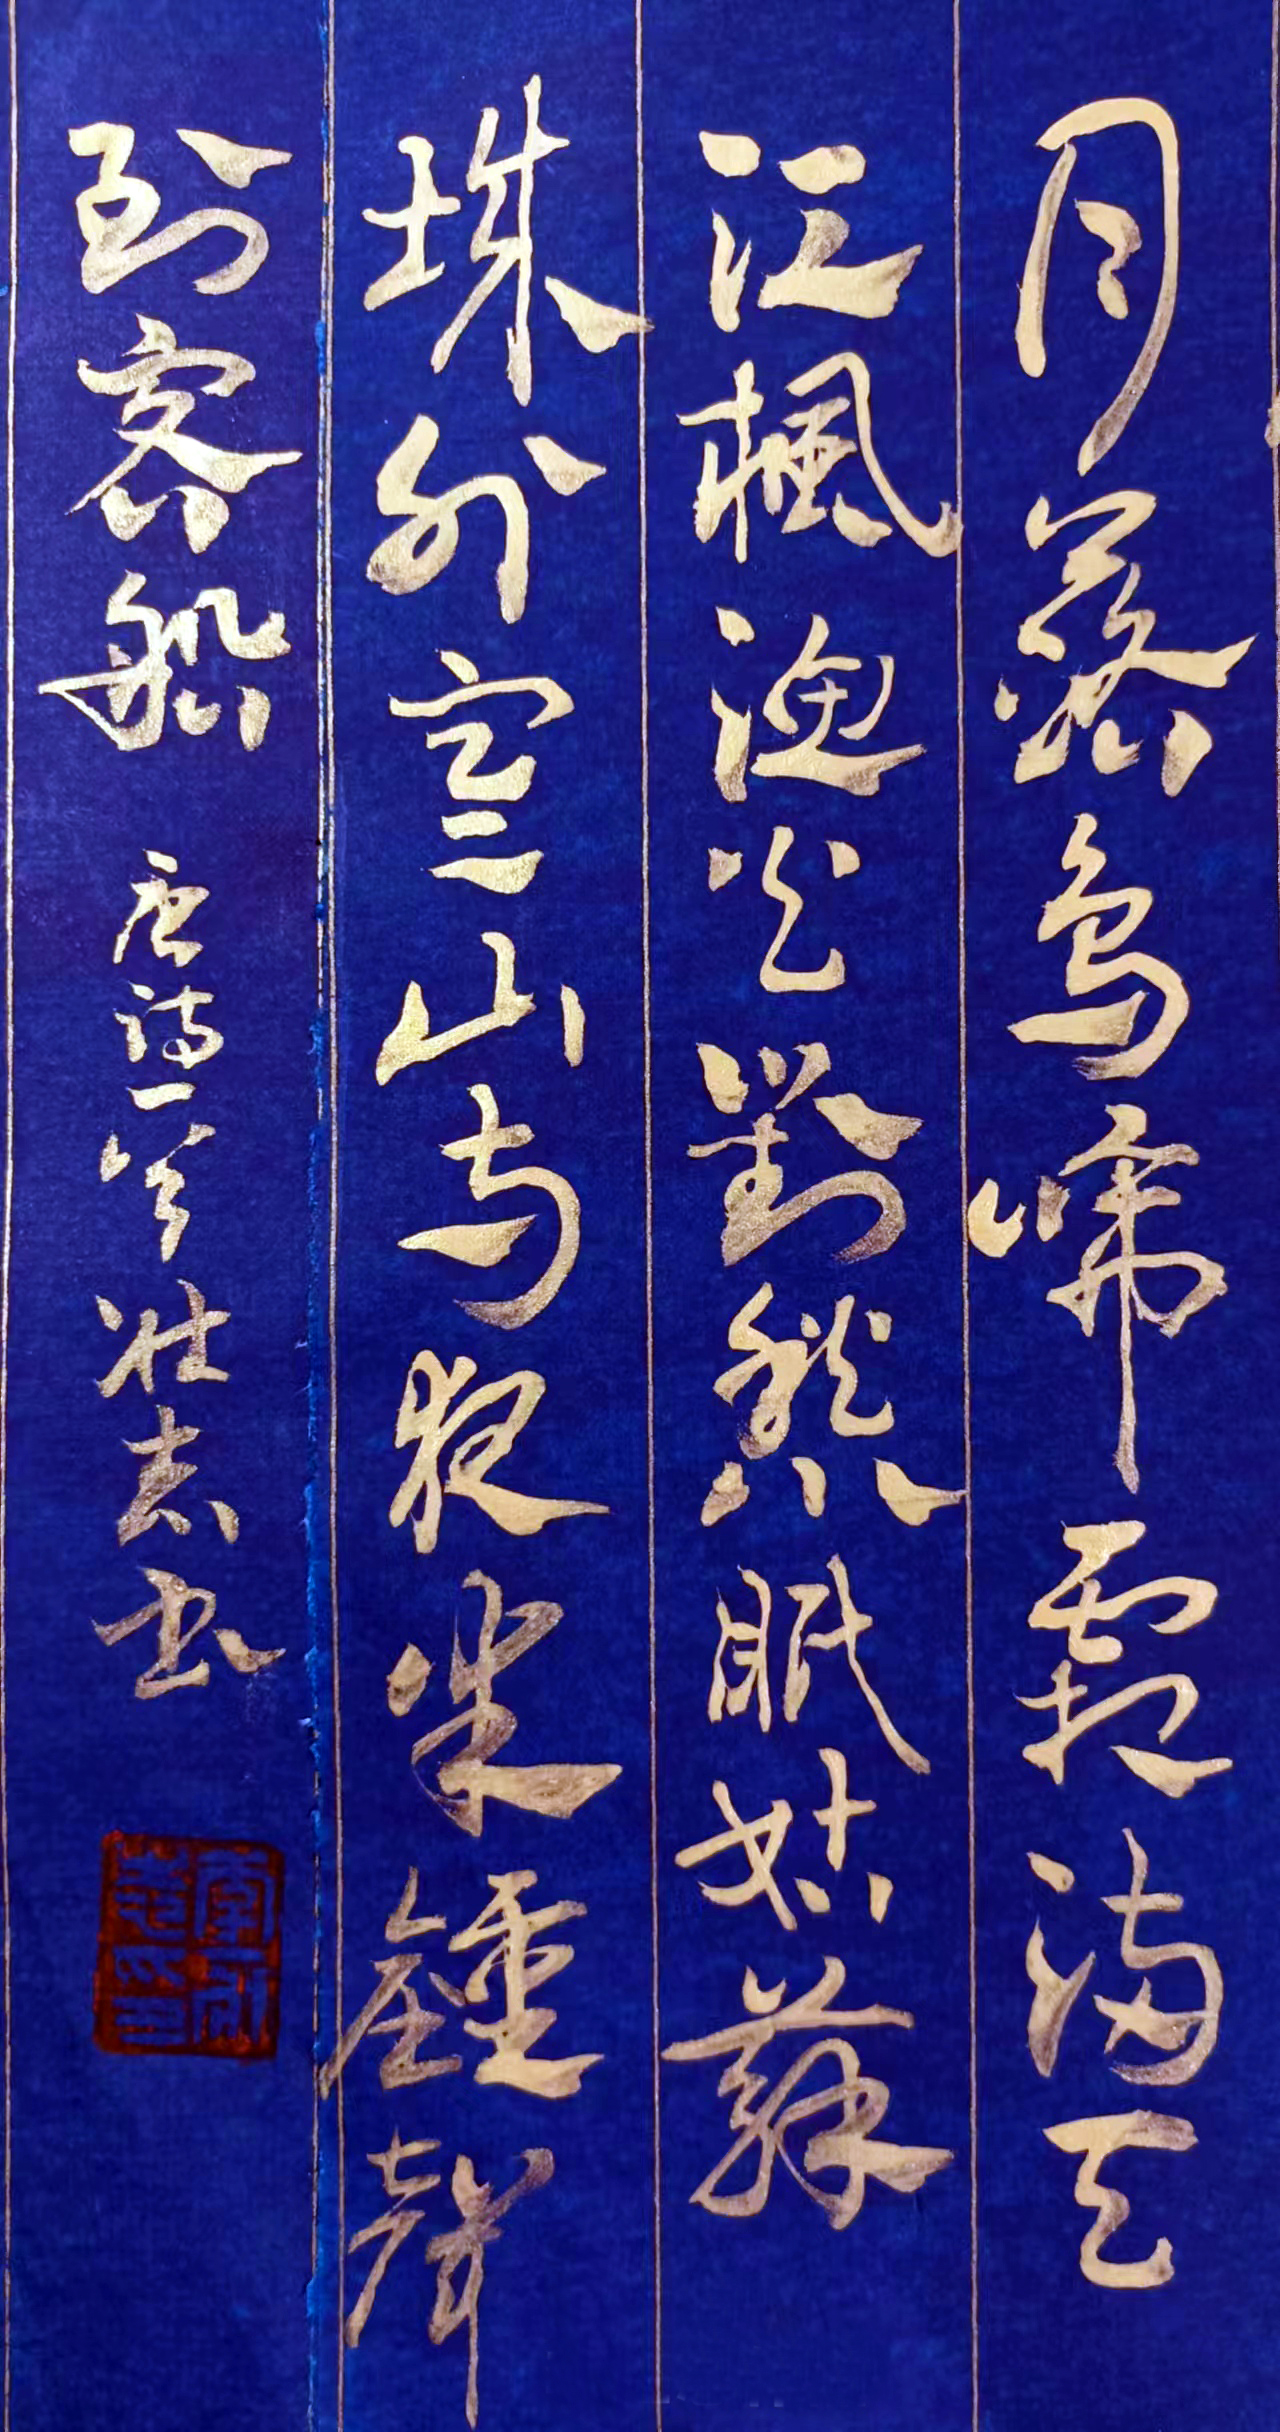 月落烏啼霜滿天
江楓漁火對愁眠姑蘇
城外寒山寺夜半鍾聲
到客船 唐詩一首 壯志书